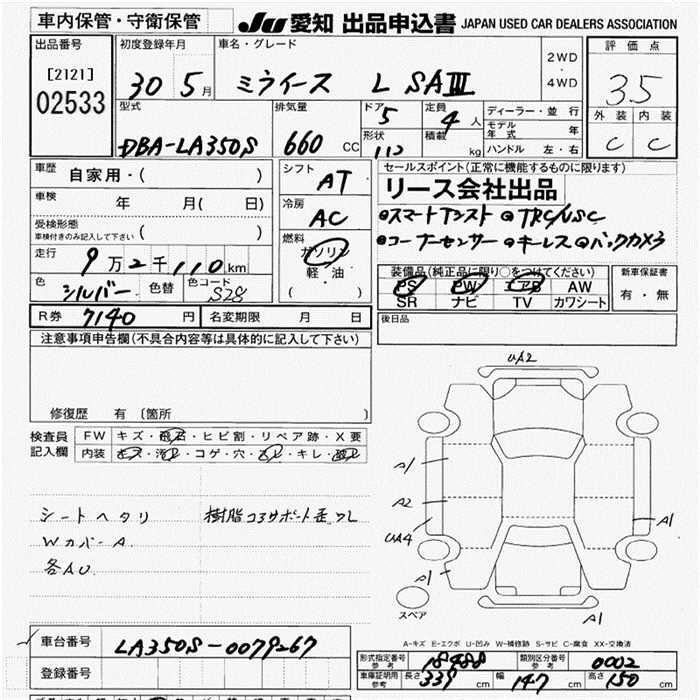 車内保管・守衛保管 JU 愛知 出品申込書 JAPAN USED CAR DEALERS ASSOCIATION
出品番号 初度登録年月 車名・グレード 2WD・4WD 評価点
[2121] 02533 30 5月 ミライース L SAⅢ 3.5
外装 内装
C C
型式 排気量 ドア 定員 ディーラー・並行
DBA-LA350S 660 CC 5 4人 モデル年式 年
形状 積載 ハンドル 左・右
kg
車歴 自家用・( ) シフト AT セールスポイント(正常に機能するものに限ります)
リース会社出品
車検 年 月( 日) 冷房 AC
受検形態 車検付きのみ記入して下さい ( )
●コーナーセンサー ●キーレス ●バックカメラ
走行 9万2千110km 燃料 ガソリン 軽・油 ( )
色 シルバー 色替 色コード S28
装備品(純正品に限り○をつけてください) 新車保証書
PS PW エアB AW 有・無
SR ナビ TV カワシート
R券 7140 円 名変期限 月 日 後日品
注意事項申告欄(不具合内容等は具体的に記入して下さい)
修復歴 有 〔箇所 〕
検査員記入欄 FW キズ・飛石・ヒビ割・リペア跡・X要
内装 キズ・汚レ・コゲ・穴・スレ・キレ・
UA2
A1
A2
UA4
A1
A1
A1
スペア
シートヘタリ
Wカバー A
各AU
A-キズ E-エクボ U-凹み W-補修跡 S-サビ C-腐食 XX-交換済
車台番号 LA350S-0079267
登録番号
形式指定番号 参考 18488 類別区分番号 参考 0002
車庫証明用 参考 長さ 339 cm 幅 147 cm 高さ 150 cm